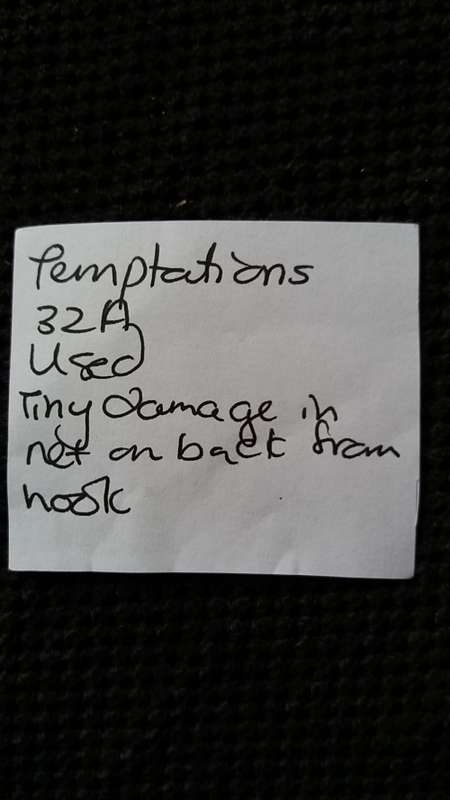 Temptations
32A
Used
Tiny Damage in
net on back from
hook